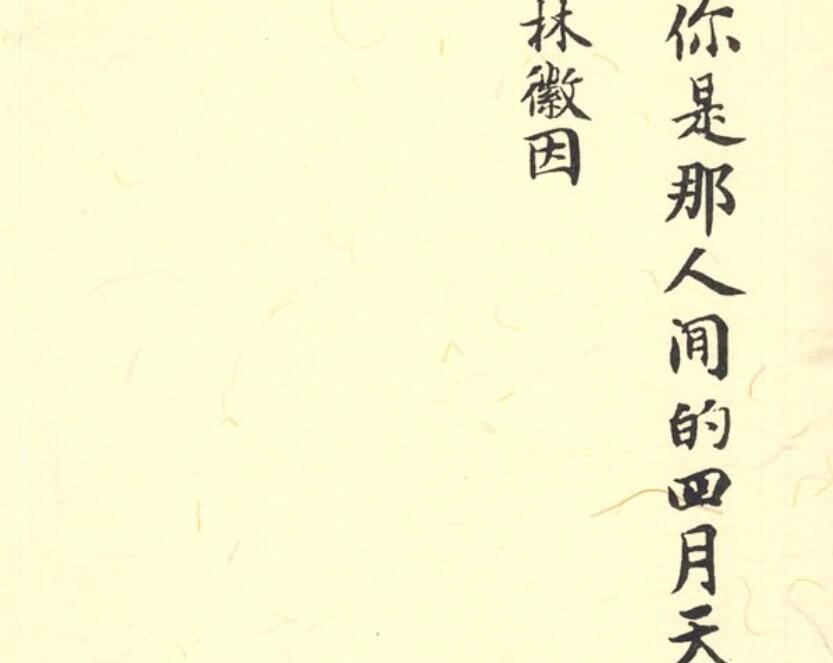 你是那人间的四月天
林徽因